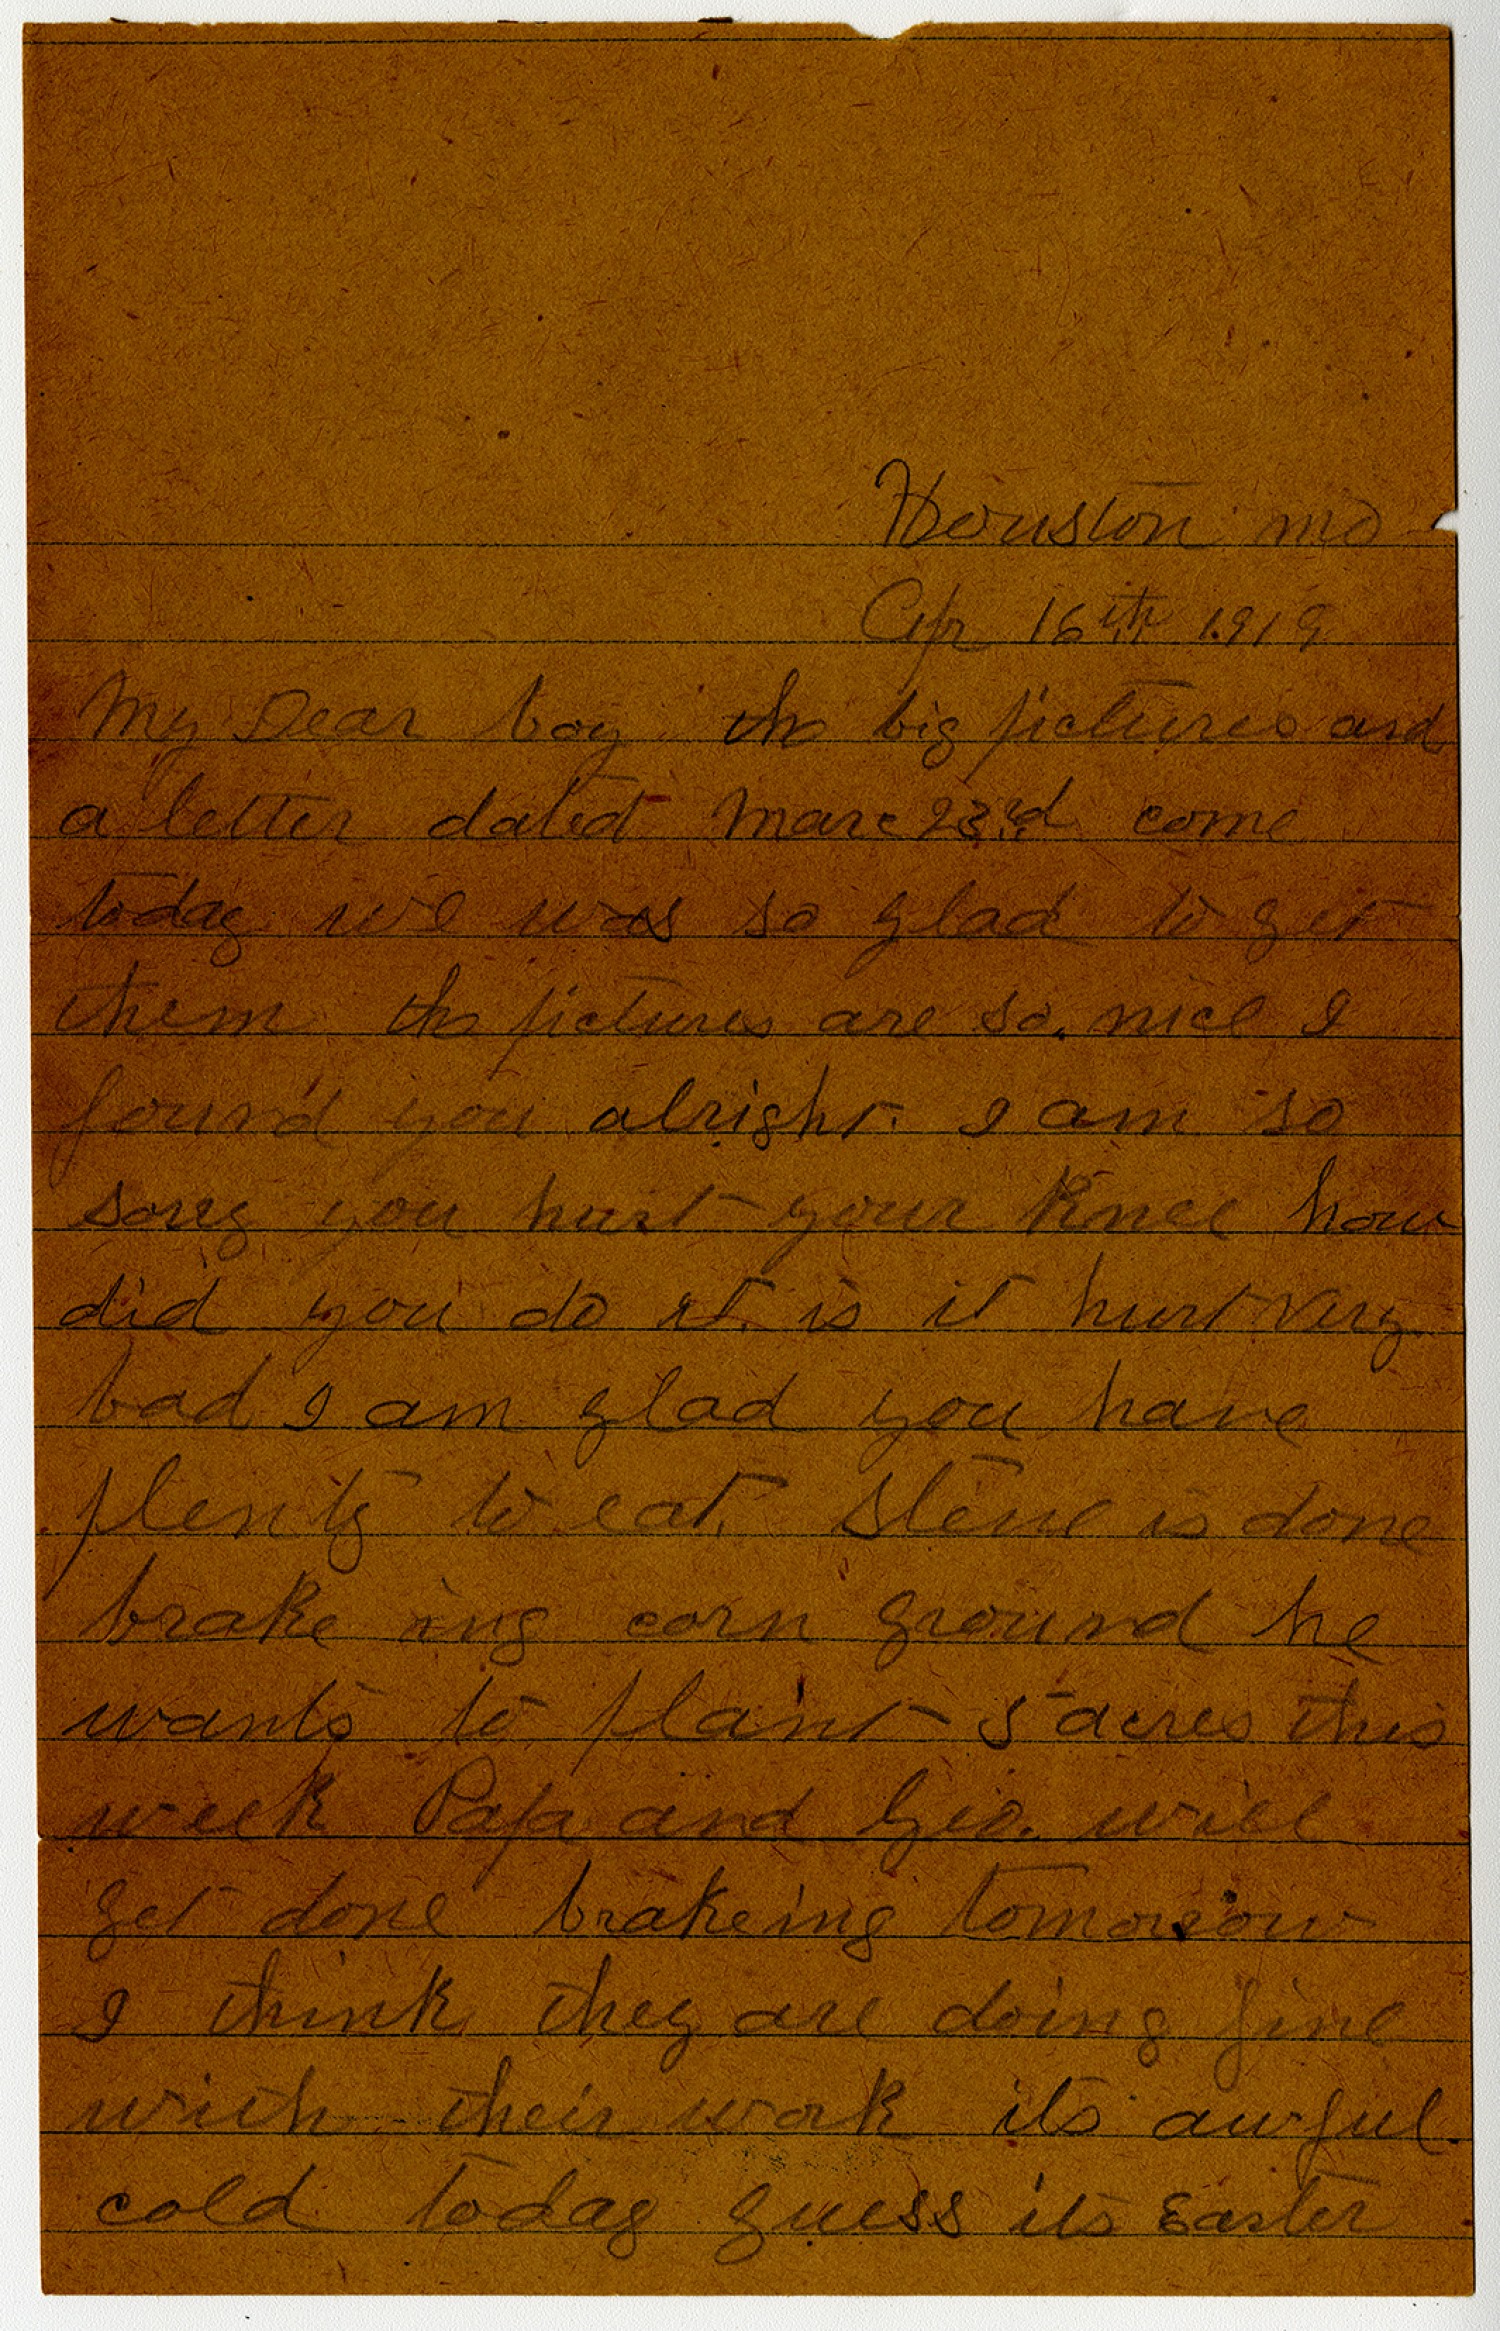 Houston Mo
Apr 16th 1919
My Dear boy the big pictures and
a letter dated Marc 23rd come
today we was so glad to get
them the pictures are so nice I
found you alright. I am so
sorry you hurt your Knee how
did you do it. is it hurt very
bad I am glad you have
plenty to eat. Steve is done
brake ing corn ground he
wants to plant 5 acres this
week Papa and Geo. will
get done brakeing tomorow
I think they are doing fine
with their work its awful
cold today guess its Easter